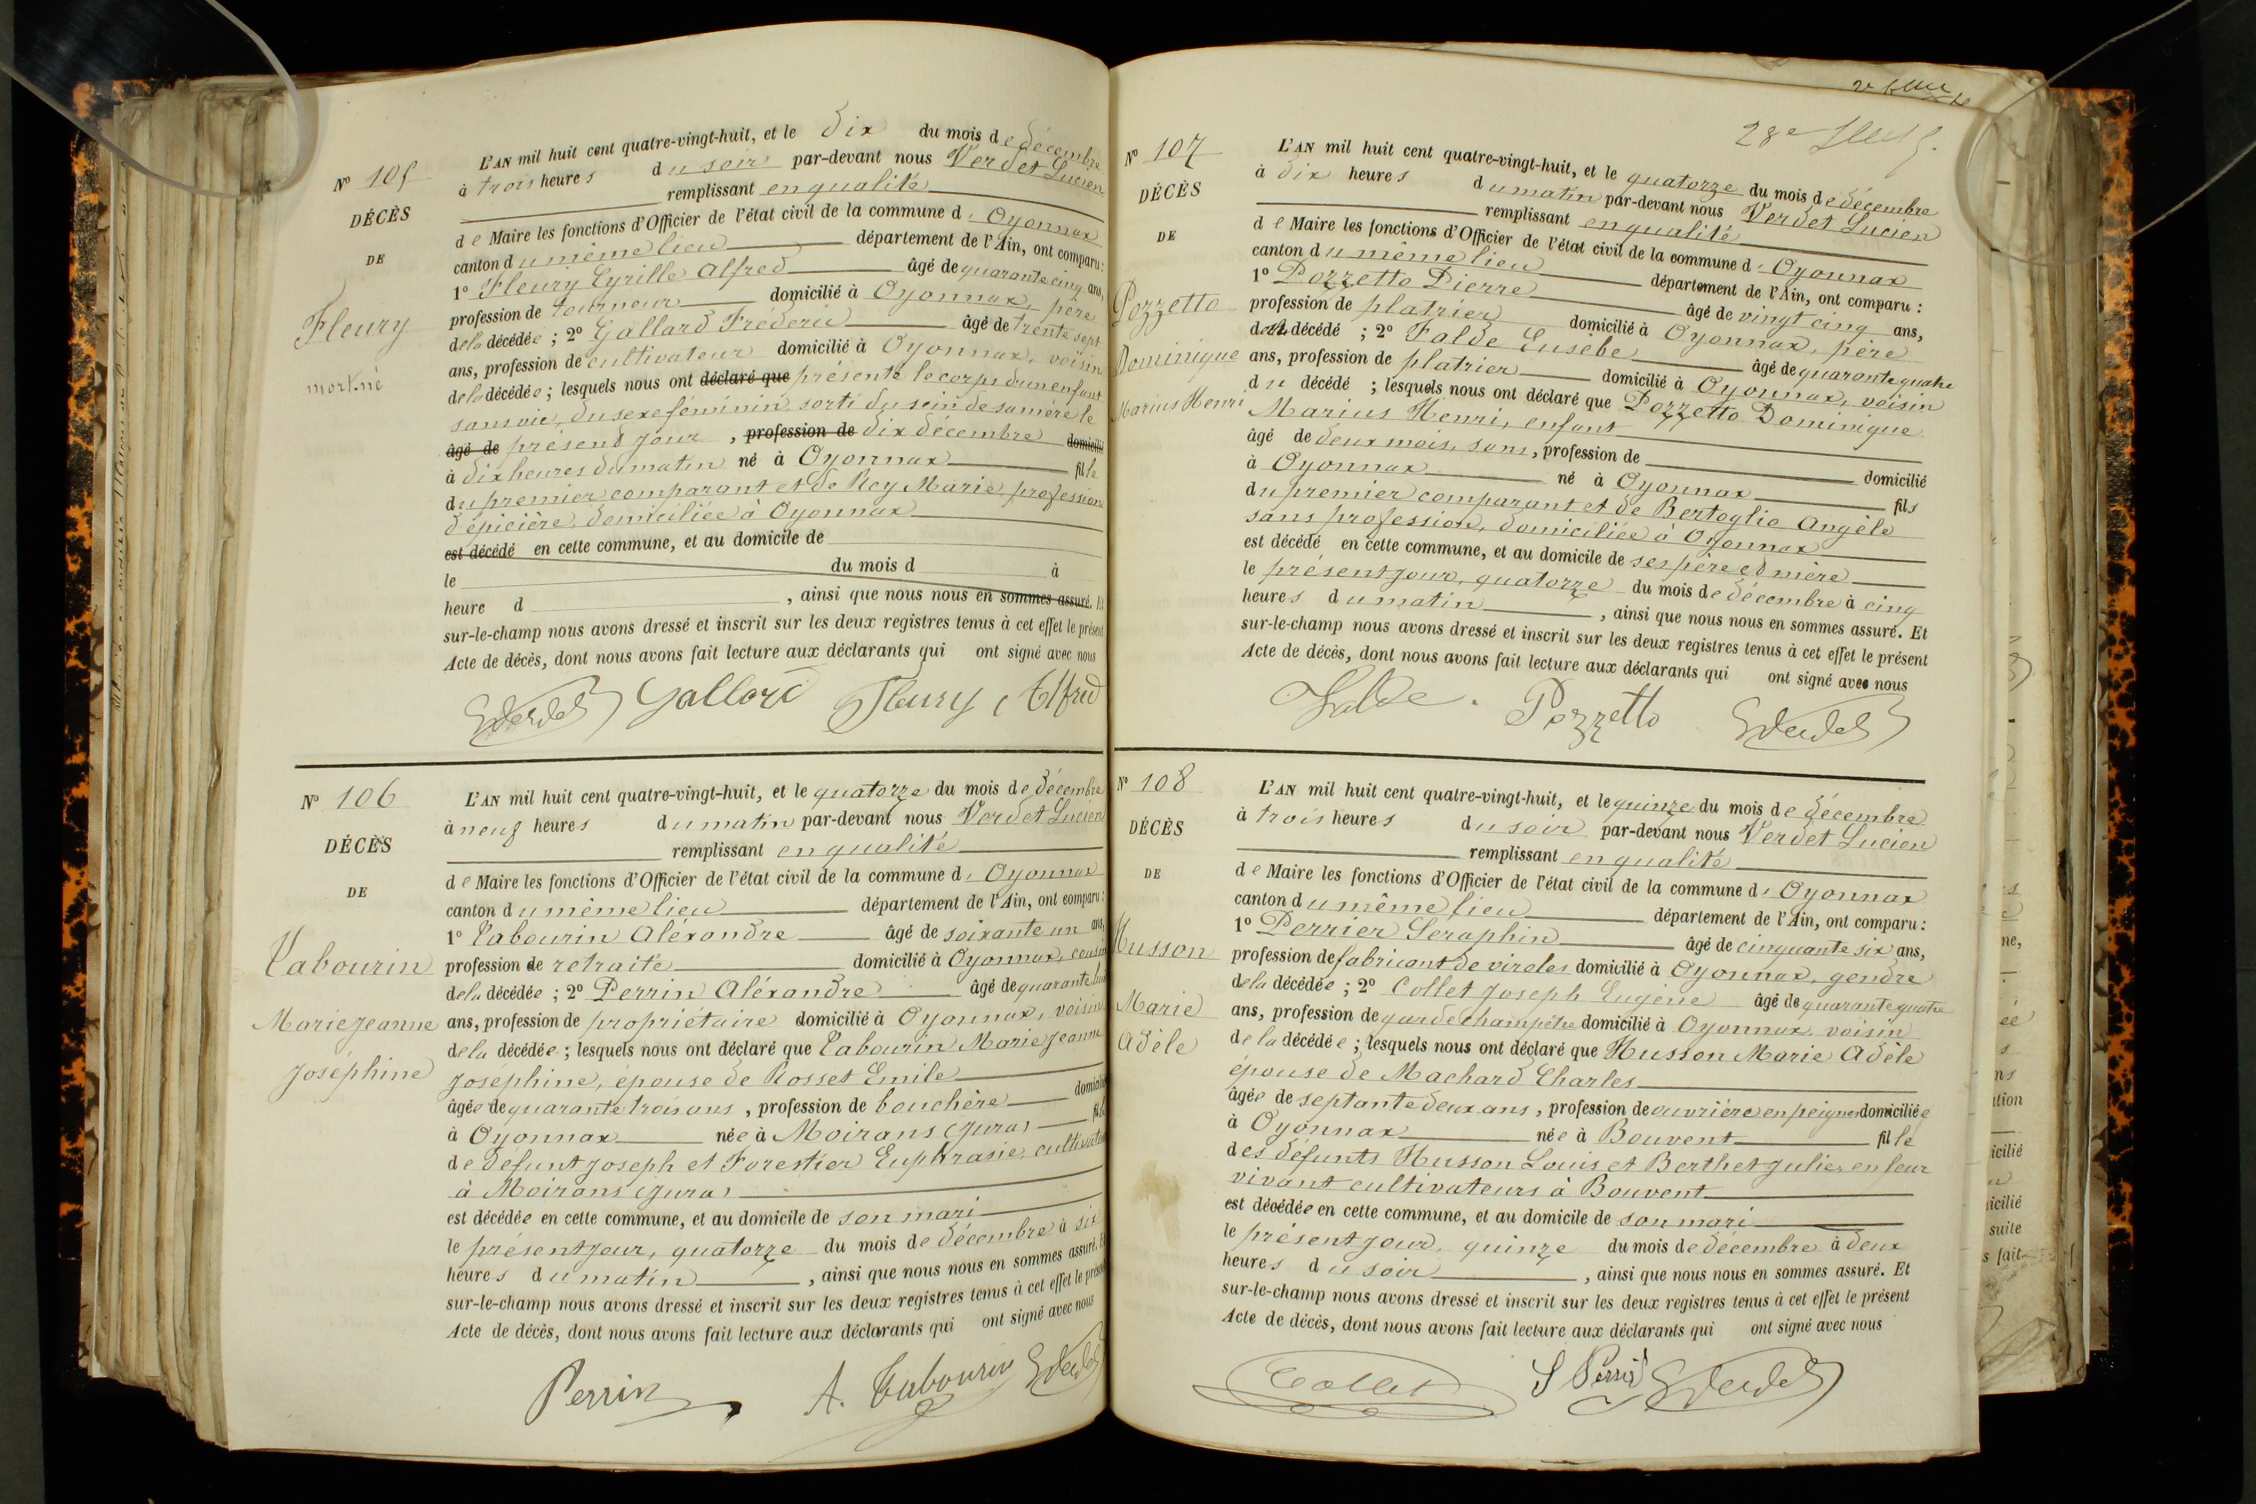 N° 105
DÉCÈS
DE
Fleury
mort né
L'AN mil huit cent quatre-vingt-huit, et le dix du mois de décembre
à trois heures du soir par-devant nous Verdet Lucien
remplissant en qualité
de Maire les fonctions d'Officier de l'état civil de la commune d'Oyonnax
canton du même lieu département de l'Ain, ont comparu :
1° Fleury Cyrille Alfred âgé de quarante cinq ans,
profession de tourneur domicilié à Oyonnax, père
de la décédée ; 2° Gallard Fréderic âgé de trente sept
ans, profession de cultivateur domicilié à Oyonnax, voisin
de la décédée ; lesquels nous ont déclaré que présenté le corps d'un enfant
sans vie, du sexe féminin sorti du sein de sa mère le
âgé de présent jour , profession de dix décembre domicilié
à dix heures du matin né à Oyonnax fille
du premier comparant et de Rey Marie profession
d'épicière domiciliée à Oyonnax
est décédé en cette commune, et au domicile de
le du mois d à
heure d , ainsi que nous nous en sommes assuré. Et
sur-le-champ nous avons dressé et inscrit sur les deux registres tenus à cet effet le présent
Acte de décès, dont nous avons fait lecture aux déclarants qui ont signé avec nous
Verdet Gallard Fleury Alfred
N° 106
DÉCÈS
DE
Tabourin
Marie Jeanne
Joséphine
L'AN mil huit cent quatre-vingt-huit, et le quatorze du mois de décembre
à neuf heures du matin par-devant nous Verdet Lucien
remplissant en qualité
de Maire les fonctions d'Officier de l'état civil de la commune d'Oyonnax
canton du même lieu département de l'Ain, ont comparu :
1° Tabourin Aléxandre âgé de soixante un ans,
profession de retraité domicilié à Oyonnax, cousin
de la décédée ; 2° Perrin Aléxandre âgé de quarante
ans, profession de propriétaire domicilié à Oyonnax, voisin
de la décédée ; lesquels nous ont déclaré que Tabourin Marie Jeanne
Joséphine, épouse de Rosset Emile
âgée de quarante trois ans , profession de bouchère domiciliée
à Oyonnax née à Moirans (Jura) fille
de défunt Joseph et Forestier Euphrasie, cultivateurs
à Moirans (Jura)
est décédée en cette commune, et au domicile de son mari
le présent jour, quatorze du mois de décembre à six
heures du matin , ainsi que nous nous en sommes assuré. Et
sur-le-champ nous avons dressé et inscrit sur les deux registres tenus à cet effet le présent
Acte de décès, dont nous avons fait lecture aux déclarants qui ont signé avec nous
Perrin A. Tabourin Verdet
28e
N° 107
DÉCÈS
DE
Pozzetto
Dominique
Marius Henri
L'AN mil huit cent quatre-vingt-huit, et le quatorze du mois de décembre
à dix heures du matin par-devant nous Verdet Lucien
remplissant en qualité
de Maire les fonctions d'Officier de l'état civil de la commune d'Oyonnax
canton du même lieu département de l'Ain, ont comparu :
1° Pozzetto Pierre âgé de vingt cinq ans,
profession de platrier domicilié à Oyonnax, père
du décédé ; 2° Falde Eusèbe âgé de quarante quatre
ans, profession de platrier domicilié à Oyonnax, voisin
du décédé ; lesquels nous ont déclaré que Pozzetto Dominique
Marius Henri, enfant
âgé de deux mois, sans, profession de
à Oyonnax né à Oyonnax domicilié
du premier comparant et de Bertoglio Angèle fils
sans profession, domiciliée à Oyonnax
est décédé en cette commune, et au domicile de ses père et mère
le présent jour, quatorze du mois de décembre à cinq
heures du matin , ainsi que nous nous en sommes assuré. Et
sur-le-champ nous avons dressé et inscrit sur les deux registres tenus à cet effet le présent
Acte de décès, dont nous avons fait lecture aux déclarants qui ont signé avec nous
Falde. Pozzetto Verdet
N° 108
DÉCÈS
DE
Husson
Marie
Adèle
L'AN mil huit cent quatre-vingt-huit, et le quinze du mois de décembre
à trois heures du soir par-devant nous Verdet Lucien
remplissant en qualité
de Maire les fonctions d'Officier de l'état civil de la commune d'Oyonnax
canton du même lieu département de l'Ain, ont comparu :
1° Perrier Séraphin âgé de cinquante six ans,
profession de fabricant de viroles domicilié à Oyonnax, gendre
de la décédée ; 2° Collet Joseph Eugène âgé de quarante quatre
ans, profession de garde champêtre domicilié à Oyonnax, voisin
de la décédée ; lesquels nous ont déclaré que Husson Marie Adèle
épouse de Machard Charles
âgée de septante deux ans, profession de ouvrière en peignes domiciliée
à Oyonnax née à Bouvent fille
des défunts Husson Louis et Berthet Julie, en leur
vivant cultivateurs à Bouvent
est décédée en cette commune, et au domicile de son mari
le présent jour, quinze du mois de décembre à deux
heures du soir , ainsi que nous nous en sommes assuré. Et
sur-le-champ nous avons dressé et inscrit sur les deux registres tenus à cet effet le présent
Acte de décès, dont nous avons fait lecture aux déclarants qui ont signé avec nous
Collet S Perrier Verdet